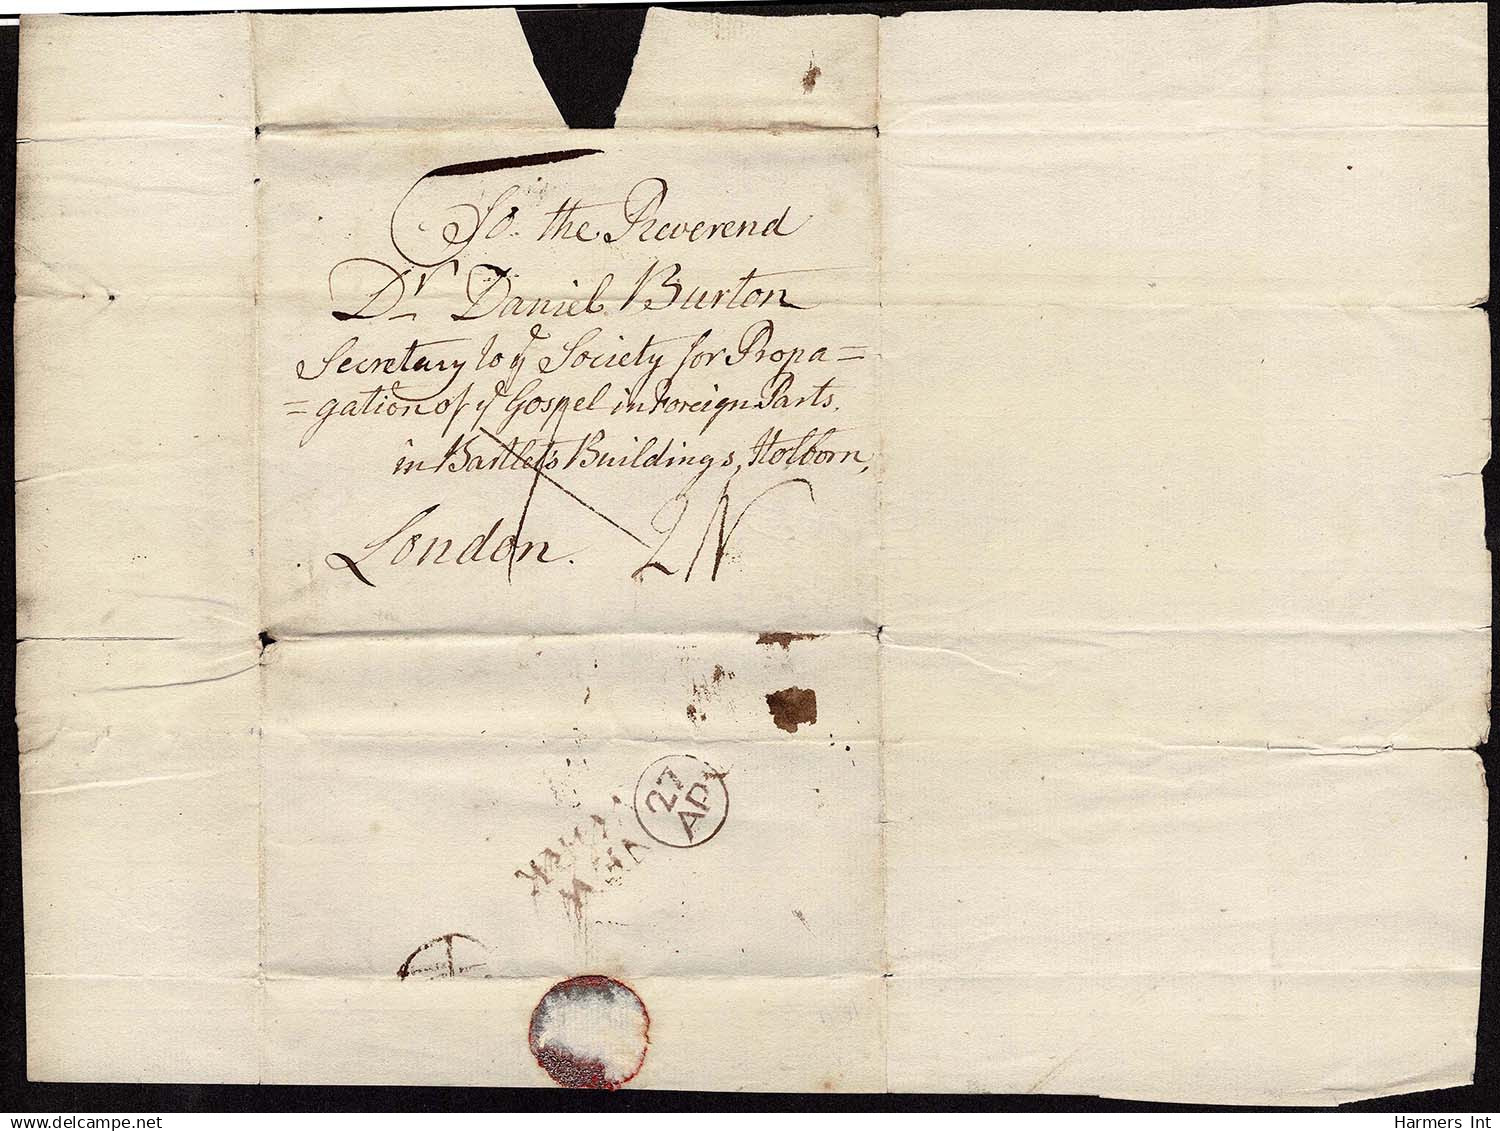 To the Reverend
Dr Daniel Burton
Secretary to ye Society for Propa=
=gation of ye Gospel in Foreign Parts.
in Bartlet's Buildings, Holborn,
London.
2N
27
AP
delcampe.net
Harmers Int